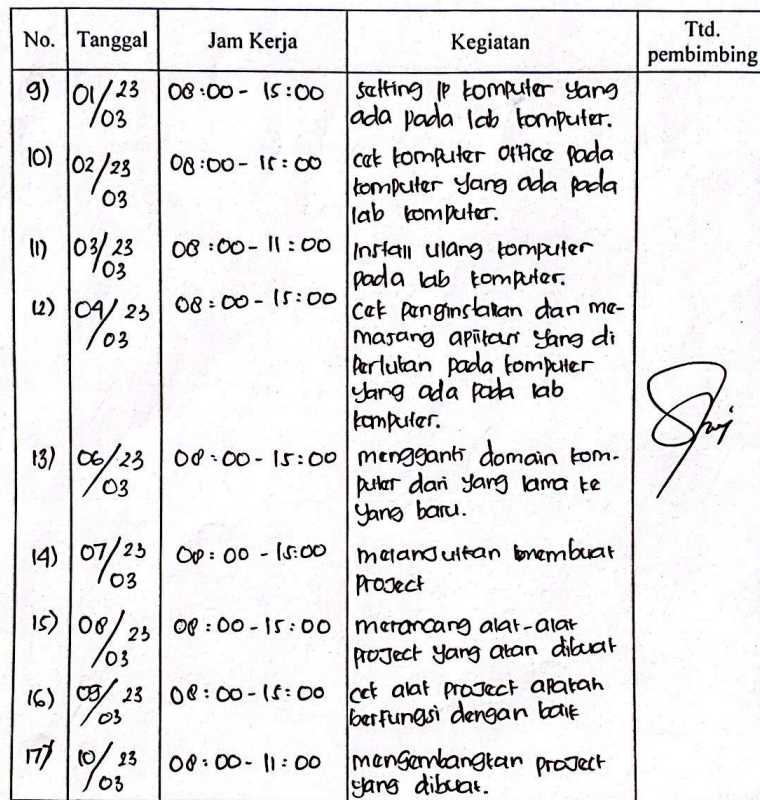 No. Tanggal Jam Kerja Kegiatan Ttd. pembimbing
9) 01/23 08:00 - 15:00 setting IP komputer yang
/03 ada pada lab komputer.
10) 02/23 08:00 - 15:00 cek komputer office pada
03 komputer yang ada pada
lab komputer.
11) 03/23 08:00 - 11:00 Install ulang komputer
03 pada lab komputer.
12) 04/23 08:00 - 15:00 cek penginstalan dan me-
/03 masang aplikasi yang di
perlukan pada komputer
yang ada pada lab
komputer.
13) 06/23 08:00 - 15:00 mengganti domain kom-
/03 puter dari yang lama ke
yang baru.
14) 07/23 08:00 - 15:00 melanjutkan membuat
/03 project
15) 08/23 08:00 - 15:00 merancang alat-alat
/03 project yang akan dibuat
16) 09/23 08:00 - 15:00 cek alat project apakah
/03 berfungsi dengan baik
17) 10/23 08:00 - 11:00 mengembangkan project
/03 yang dibuat.